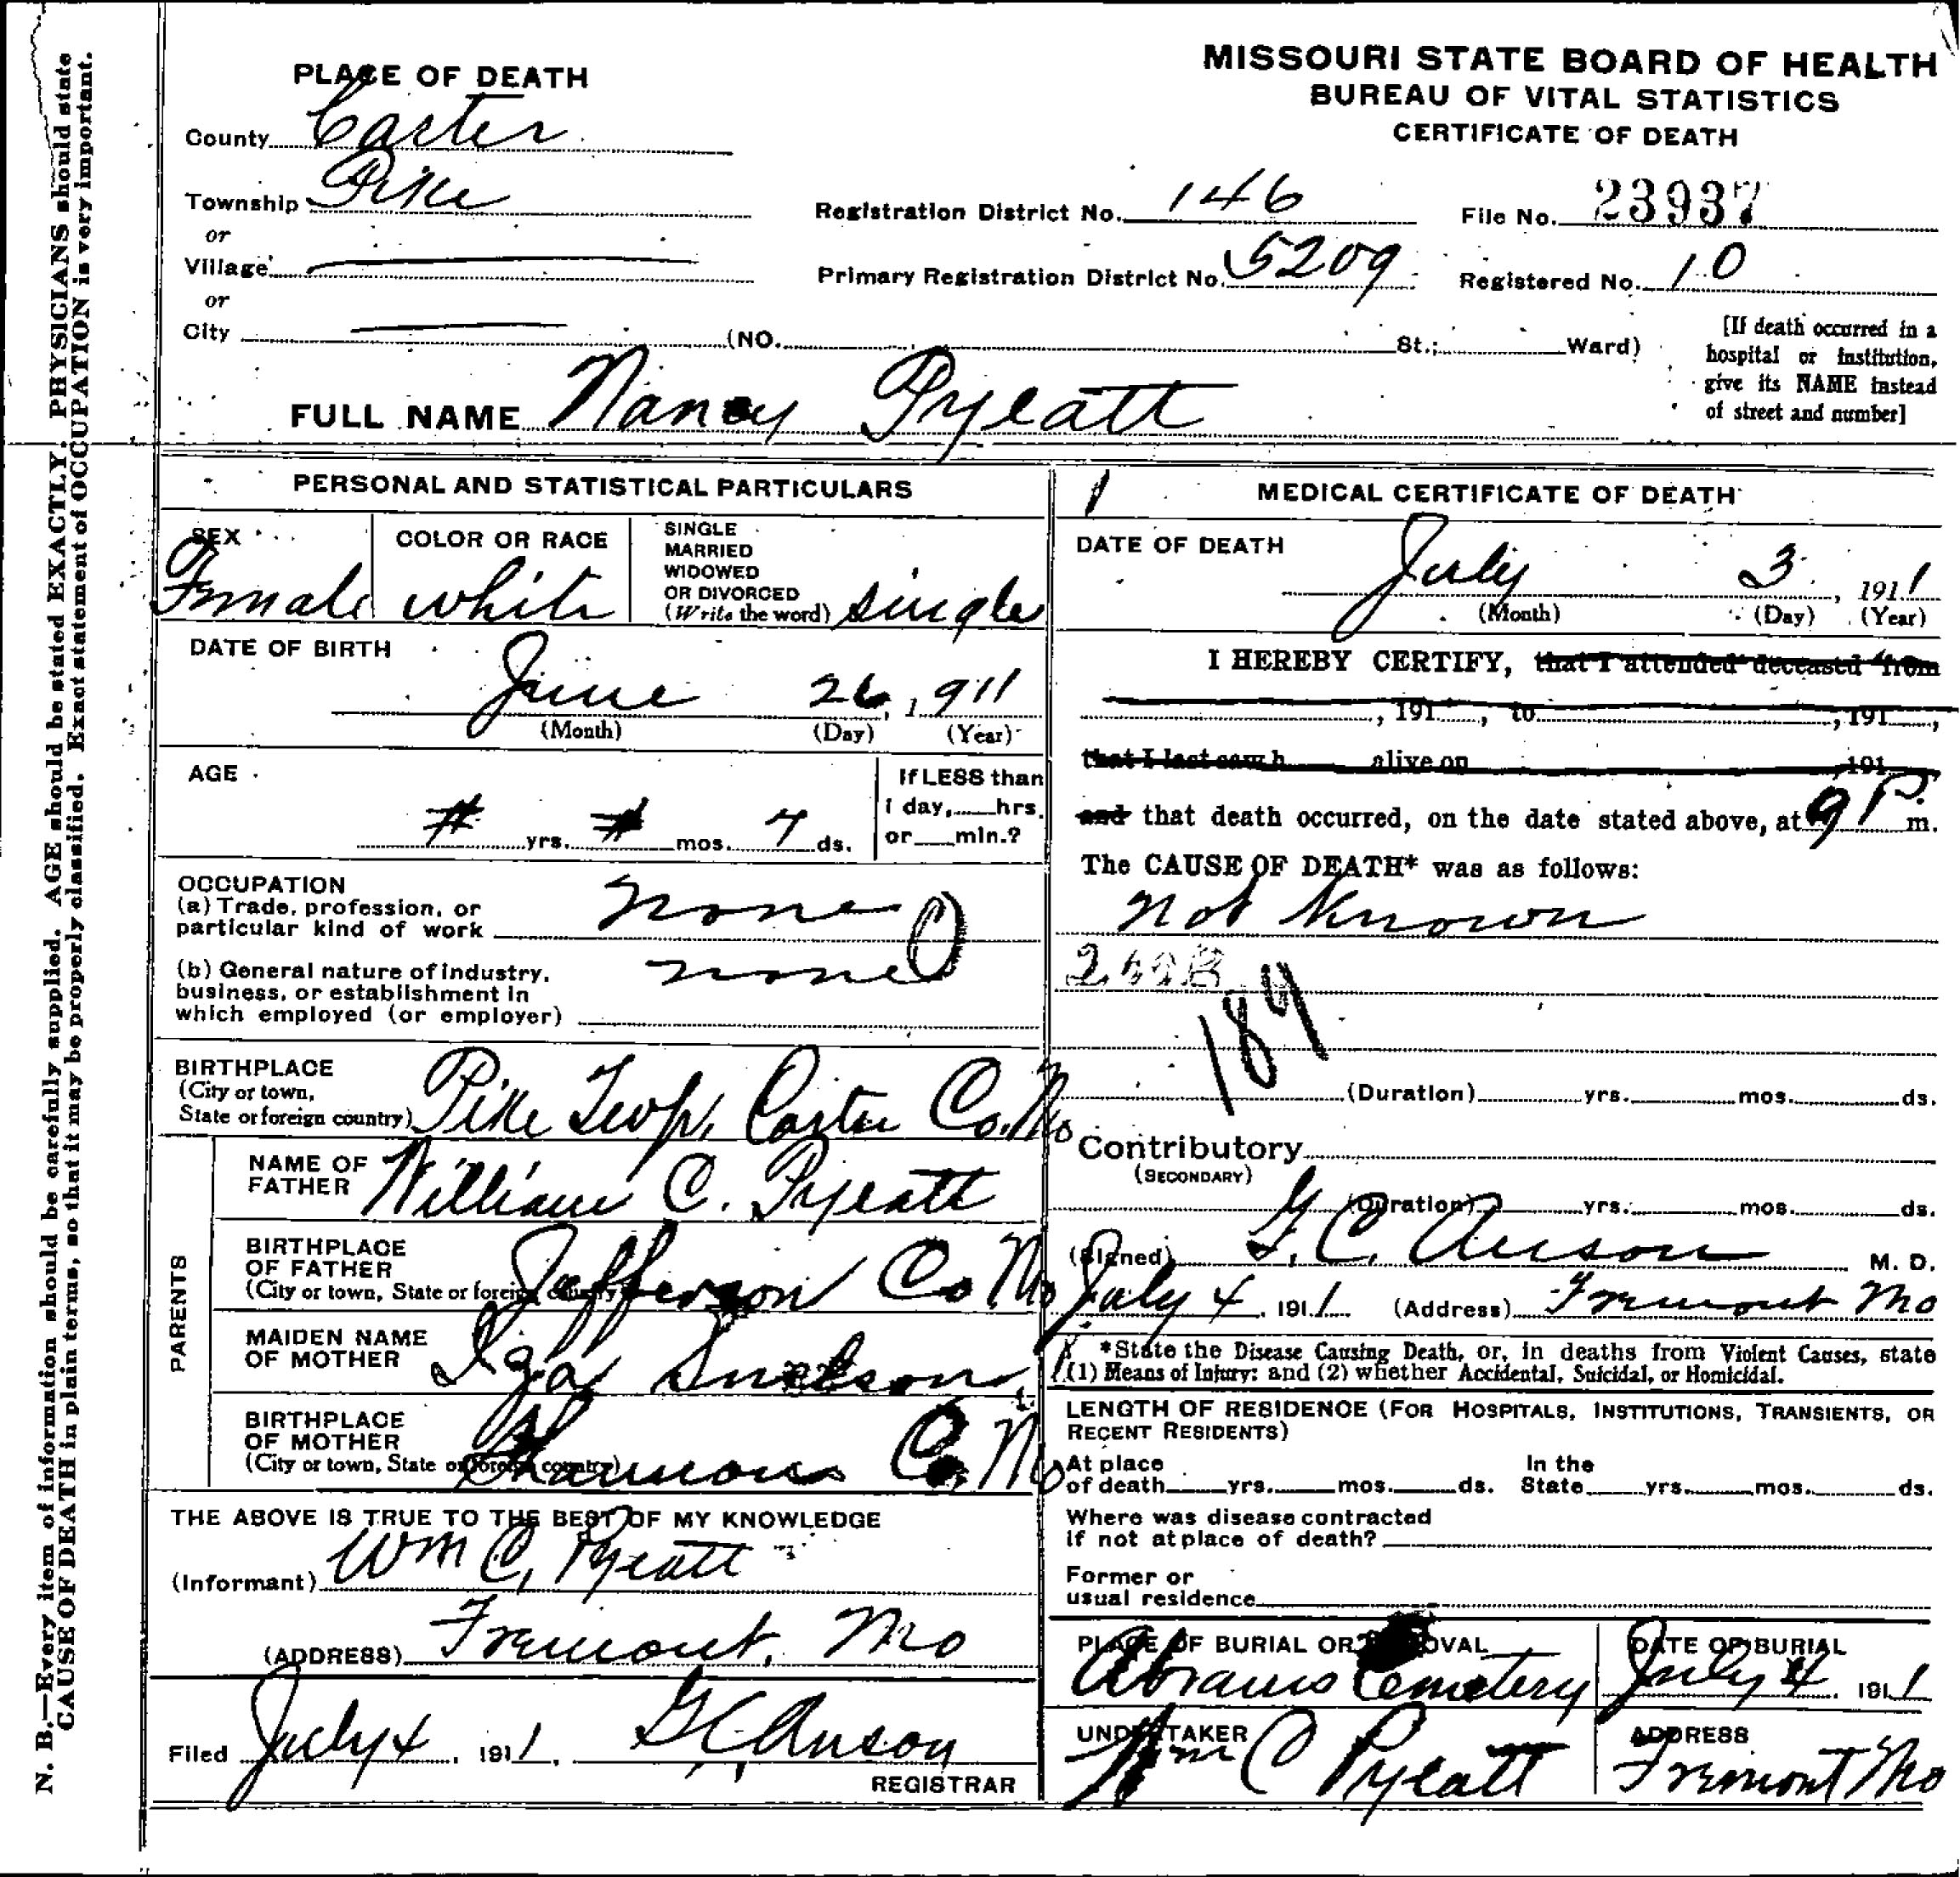 N. B.—Every item of information should be carefully supplied. AGE should be stated EXACTLY. PHYSICIANS should state
CAUSE OF DEATH in plain terms, so that it may be properly classified. Exact statement of OCCUPATION is very important.
MISSOURI STATE BOARD OF HEALTH
BUREAU OF VITAL STATISTICS
CERTIFICATE OF DEATH
PLACE OF DEATH
County Carter
Township Pike
or
Village
or
City (NO. St.; Ward)
Registration District No. 146
File No. 23937
Primary Registration District No. 5209
Registered No. 10
[If death occurred in a
hospital or institution,
give its NAME instead
of street and number]
FULL NAME Nancy Pyeatt
PERSONAL AND STATISTICAL PARTICULARS
SEX
Female
COLOR OR RACE
white
SINGLE
MARRIED
WIDOWED
OR DIVORCED
(Write the word) single
DATE OF BIRTH
June 26, 1911
(Month) (Day) (Year)
AGE
yrs. mos. 7 ds.
If LESS than
1 day, hrs.
or min.?
OCCUPATION
(a) Trade, profession, or
particular kind of work none
(b) General nature of industry,
business, or establishment in
which employed (or employer) none
BIRTHPLACE
(City or town,
State or foreign country) Pike Twp, Carter Co. Mo
PARENTS
NAME OF
FATHER William C. Pyeatt
BIRTHPLACE
OF FATHER
(City or town, State or foreign country) Jefferson Co Mo
MAIDEN NAME
OF MOTHER
BIRTHPLACE
OF MOTHER
(City or town, State or foreign country) Shannon Co, Mo
THE ABOVE IS TRUE TO THE BEST OF MY KNOWLEDGE
(Informant) Wm C, Pyeatt
(ADDRESS) Fremont, Mo
Filed July 4, 1911, G C Anson
REGISTRAR
1
MEDICAL CERTIFICATE OF DEATH
DATE OF DEATH
July 3, 1911
(Month) (Day) (Year)
I HEREBY CERTIFY, that I attended deceased from
, 191 , to , 191 ,
that I last saw h alive on , 191
and that death occurred, on the date stated above, at 9 P. m.
The CAUSE OF DEATH* was as follows:
not Known
189
(Duration) yrs. mos. ds.
Contributory
(SECONDARY)
(Duration) yrs. mos. ds.
(Signed) G. C. Anson M. D.
July 4, 1911 (Address) Fremont Mo
*State the Disease Causing Death, or, in deaths from Violent Causes, state
(1) Means of Injury; and (2) whether Accidental, Suicidal, or Homicidal.
LENGTH OF RESIDENCE (FOR HOSPITALS, INSTITUTIONS, TRANSIENTS, OR
RECENT RESIDENTS)
At place
of death yrs. mos. ds.
In the
State yrs. mos. ds.
Where was disease contracted
if not at place of death?
Former or
usual residence
PLACE OF BURIAL OR REMOVAL
Abrams Cemetery
DATE OF BURIAL
July 4 1911
UNDERTAKER
Wm C Pyeatt
ADDRESS
Fremont Mo